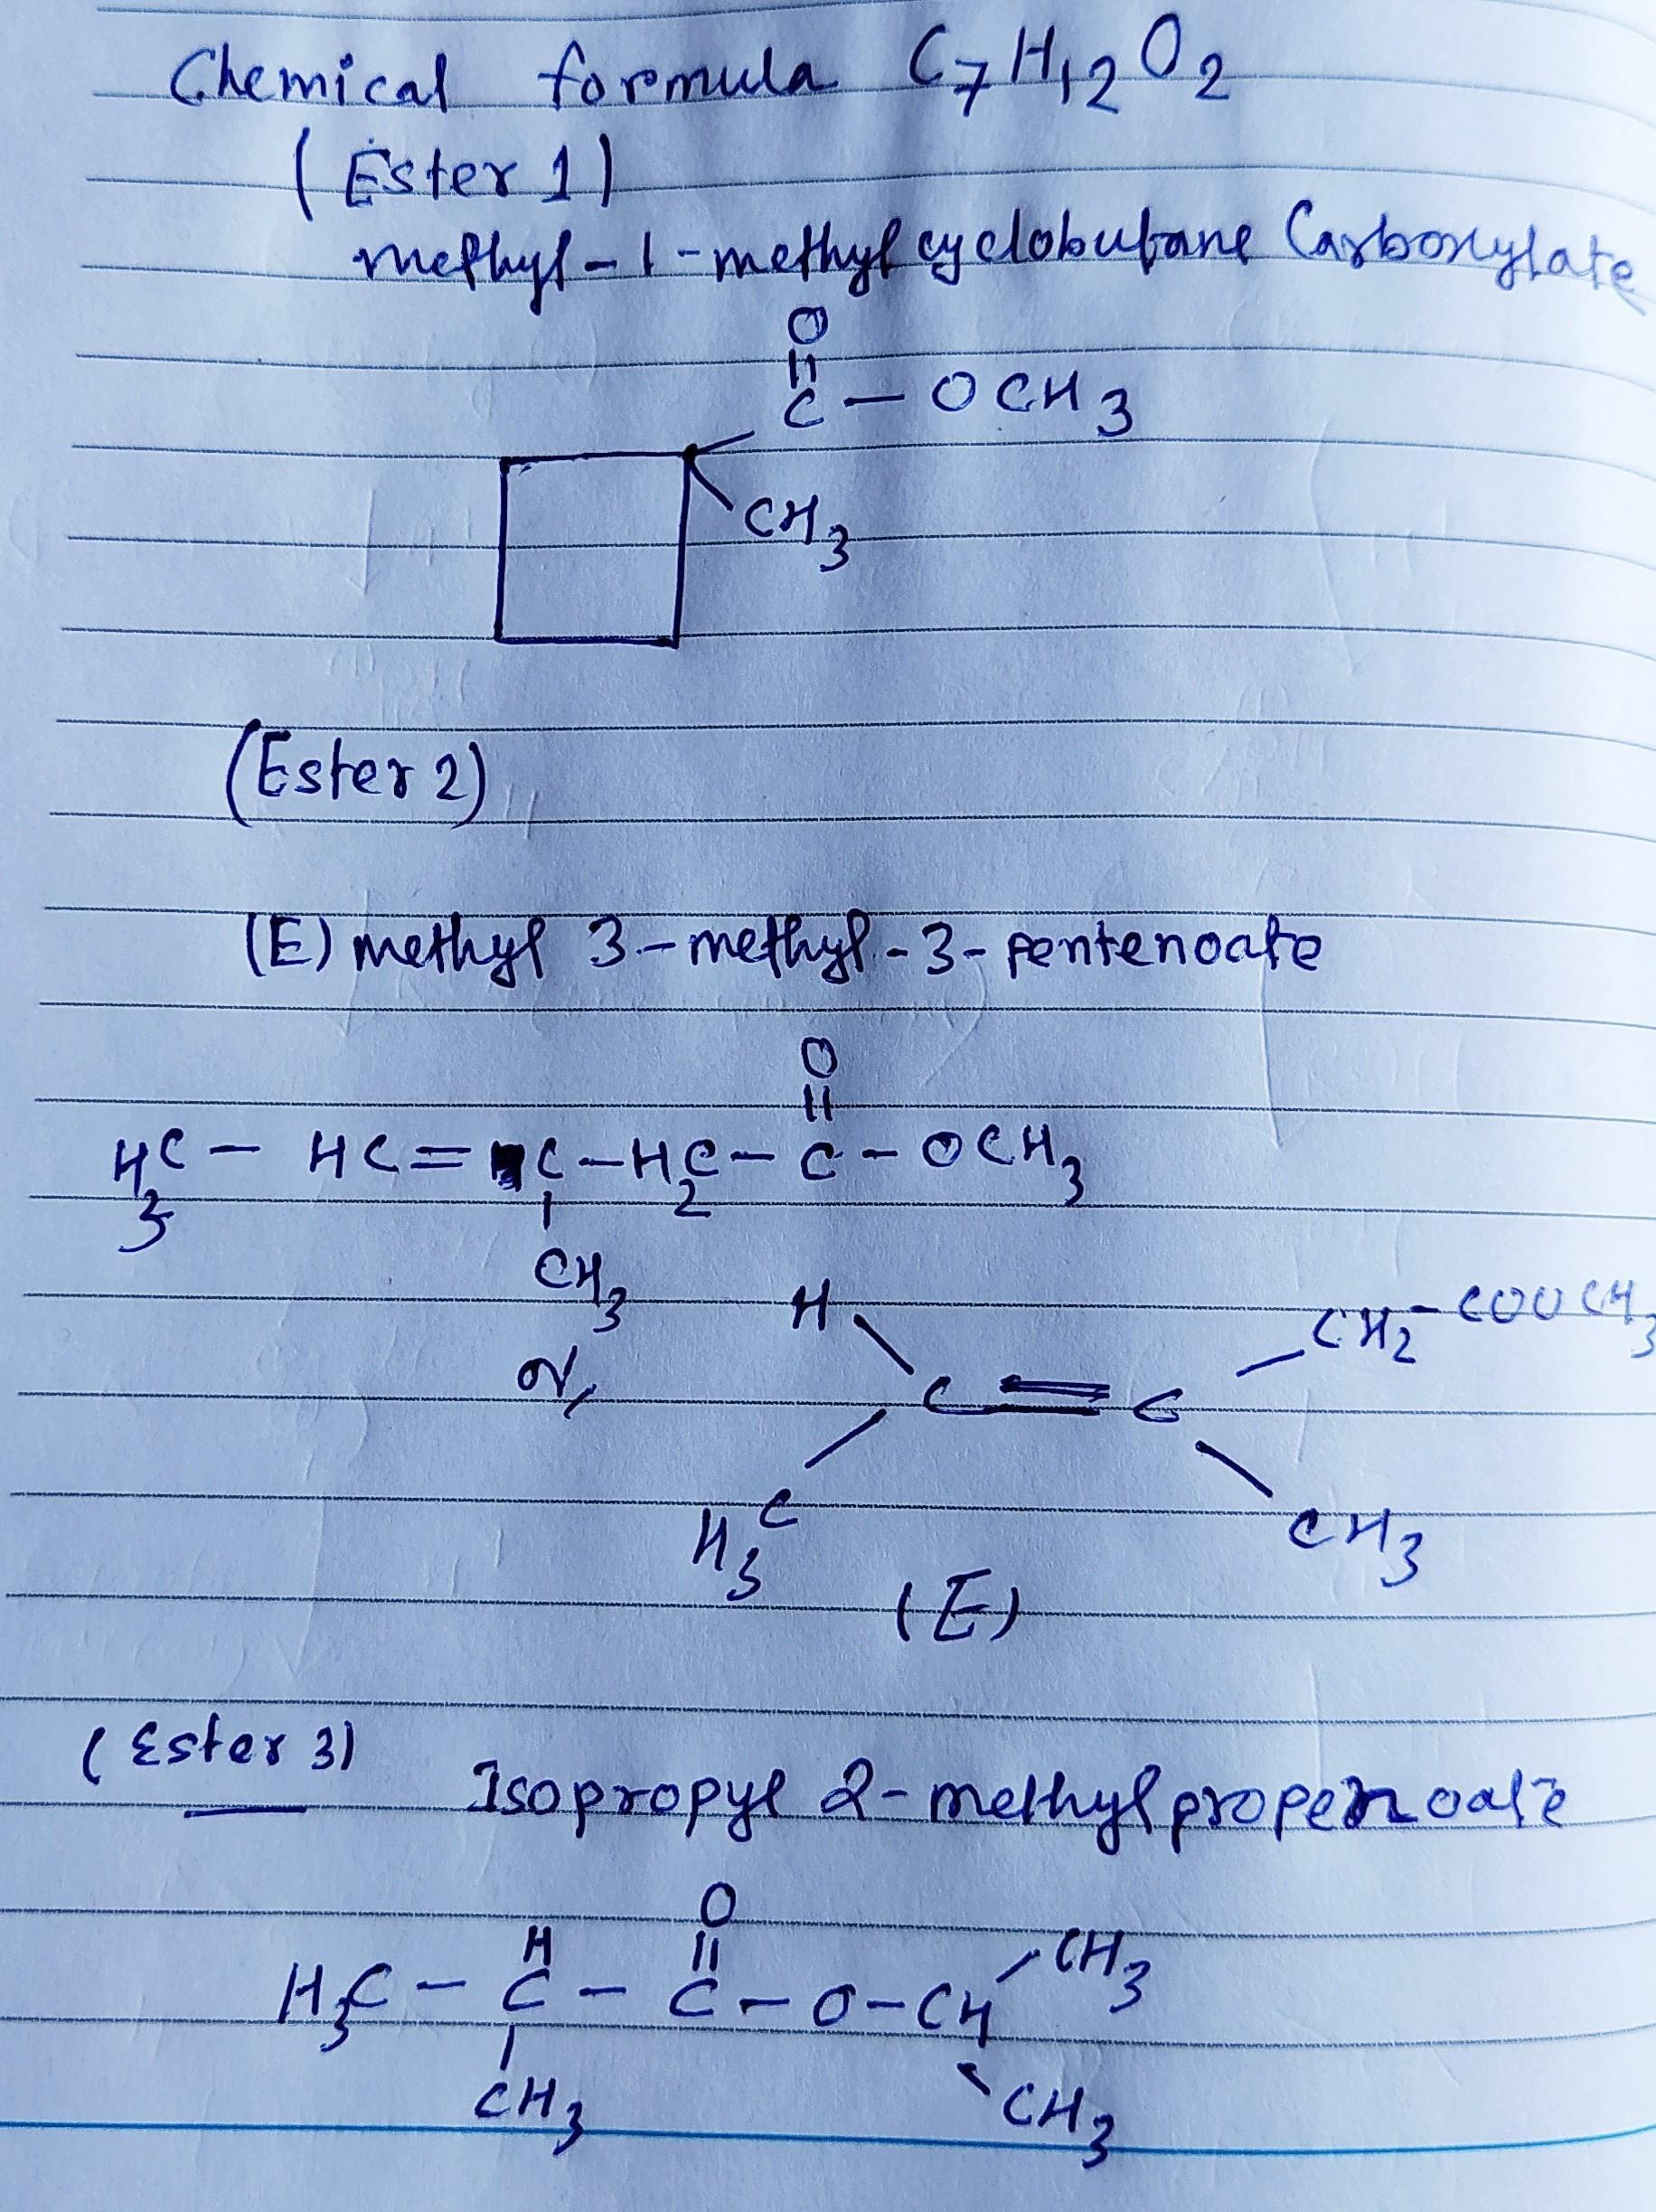 Chemical formula C7H12O2
(Ester 1)
methyl-1-methylcyclobutane Carboxylate
O
||
C - OCH3
CH3
(Ester 2)
(E) methyl 3-methyl-3-pentenoate
O
||
H3C - HC = C - H2C - C - OCH3
|
CH3
or,
H
CH2 - COOCH3
C = C
H3C
CH3
(E)
(Ester 3)
Isopropyl 2-methylpropenoate
O
H
||
H3C - C - C - O - CH
CH3
|
CH3
CH3